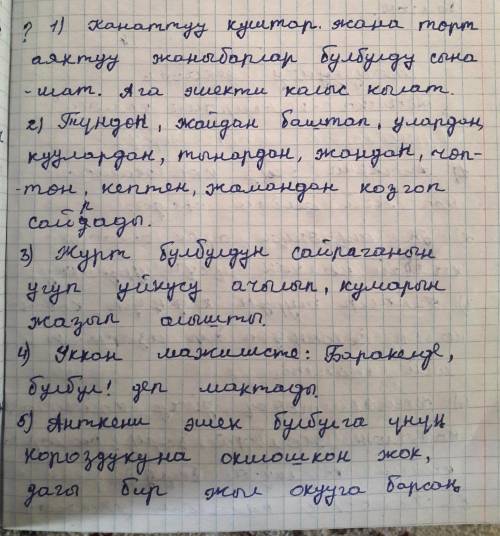 ? 1) Канаттуу куштар. жана төрт
аяктуу жаныбарлар булбулду сына
-шат. Ага эшекти калыс кылат.
2) Түндөн, жайдан баштап, улардан,
куулардан, тынардан, жандан, чөп-
-төн, кептен, жамандан козгоп
сайрады.
3) Журт булбулдун сайраганын
угуп уйкусу ачылып, кумарын
жазып алышты.
4) Уккан мажилисте: Баракелде,
булбул! деп мактады.
5) Анткени эшек булбулга үнүң
короздукуна окшошкон жок,
дагы бир жыл окууга барсаң,